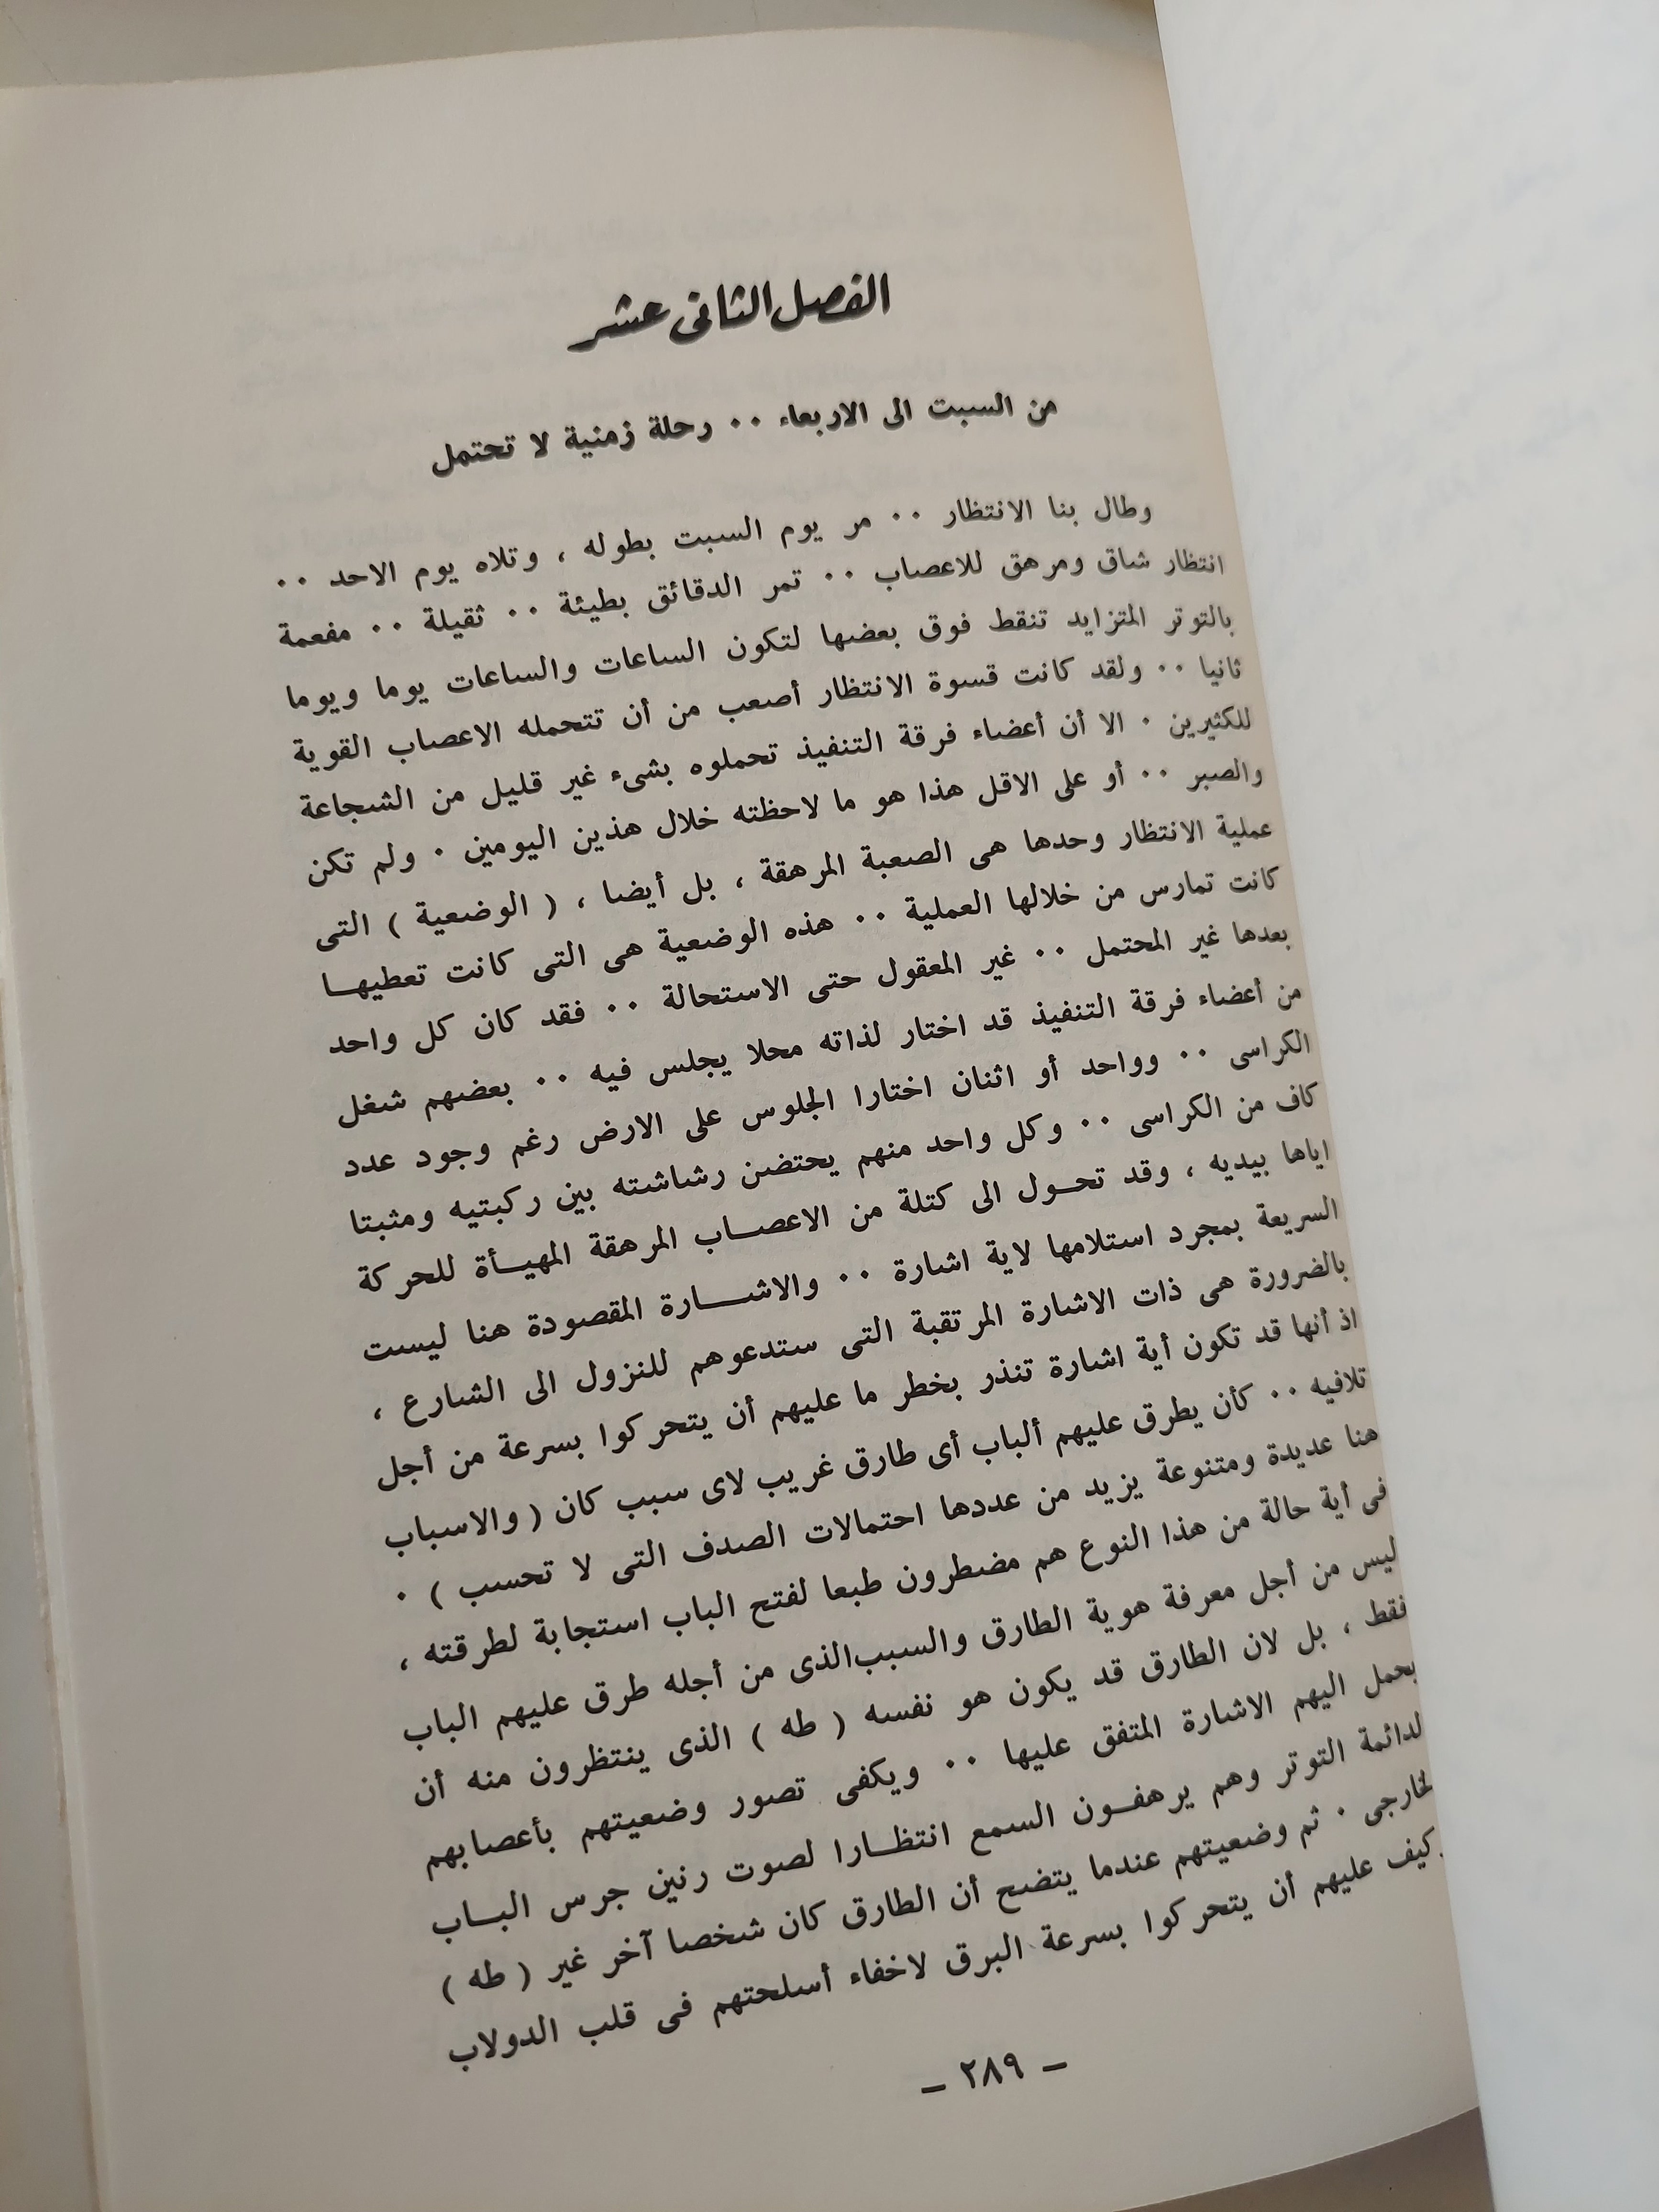 الفصل الثانى عشر
من السبت الى الاربعاء ۰۰ رحلة زمنية لا تحتمل
وطال بنا الانتظار ۰۰ مر يوم السبت بطوله ، وتلاه يوم الاحد ۰۰
انتظار شاق ومرهق للاعصاب ۰۰ تمر الدقائق بطيئة ۰۰ ثقيلة ۰۰ مفعمة
بالتوتر المتزايد تنقط فوق بعضها لتكون الساعات والساعات يوما ويوما
ثانيا ۰۰ ولقد كانت قسوة الانتظار أصعب من أن تتحمله الاعصاب القوية
للكثيرين ۰ الا أن أعضاء فرقة التنفيذ تحملوه بشىء غير قليل من الشجاعة
والصبر ۰۰ أو على الاقل هذا هو ما لاحظته خلال هذين اليومين ۰ ولم تكن
عملية الانتظار وحدها هى الصعبة المرهقة ، بل أيضا ، ( الوضعية ) التى
كانت تمارس من خلالها العملية ۰۰ هذه الوضعية هى التى كانت تعطيهـا
بعدها غير المحتمل ۰۰ غير المعقول حتى الاستحالة ۰۰ فقد كان كل واحد
من أعضاء فرقة التنفيذ قد اختار لذاته محلا يجلس فيه ۰۰ بعضهم شغل
الكراسى ۰۰ وواحد أو اثنان اختارا الجلوس على الارض رغم وجود عدد
كاف من الكراسى ۰۰ وكل واحد منهم يحتضن رشاشته بين ركبتيه ومثبتا
اياها بيديه ، وقد تحـول الى كتلة من الاعصـاب المرهقة المهيـأة للحركة
السريعة بمجرد استلامها لاية اشارة ۰۰ والاشـــارة المقصودة هنا ليست
بالضرورة هى ذات الاشارة المرتقبة التى ستدعوهم للنزول الى الشارع ،
اذ أنها قد تكون أية اشارة تنذر بخطر ما عليهم أن يتحركوا بسرعة من أجل
تلافيه ۰۰ كأن يطرق عليهم ألباب أى طارق غريب لاى سبب كان ( والاسباب
هنا عديدة ومتنوعة يزيد من عددها احتمالات الصدف التى لا تحسب ) ۰
فى أية حالة من هذا النوع هم مضطرون طبعا لفتح الباب استجابة لطرقته ،
ليس من أجل معرفة هوية الطارق والسبب الذى من أجله طرق عليهم الباب
فقط ، بل لان الطارق قد يكون هو نفسه ( طه ) الذى ينتظرون منه أن
يحمل اليهم الاشارة المتفق عليها ۰۰ ويكفى تصور وضعيتهم بأعصابهم
لدائمة التوتر وهم يرهفـون السمع انتظـارا لصوت رنين جرس البـاب
لخارجى ۰ ثم وضعيتهم عندما يتضح أن الطارق كان شخصا آخر غير ( طه )
وكيف عليهم أن يتحركوا بسرعة البرق لاخفاء أسلحتهم فى قلب الدولاب
– ٢٨٩ –